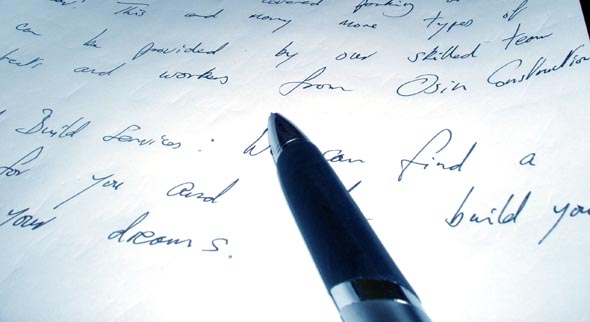 This and many more types of
can be provided by our skilled team
and workers from Osin Construction
Build Services : can find a
for you and build you
your dreams.